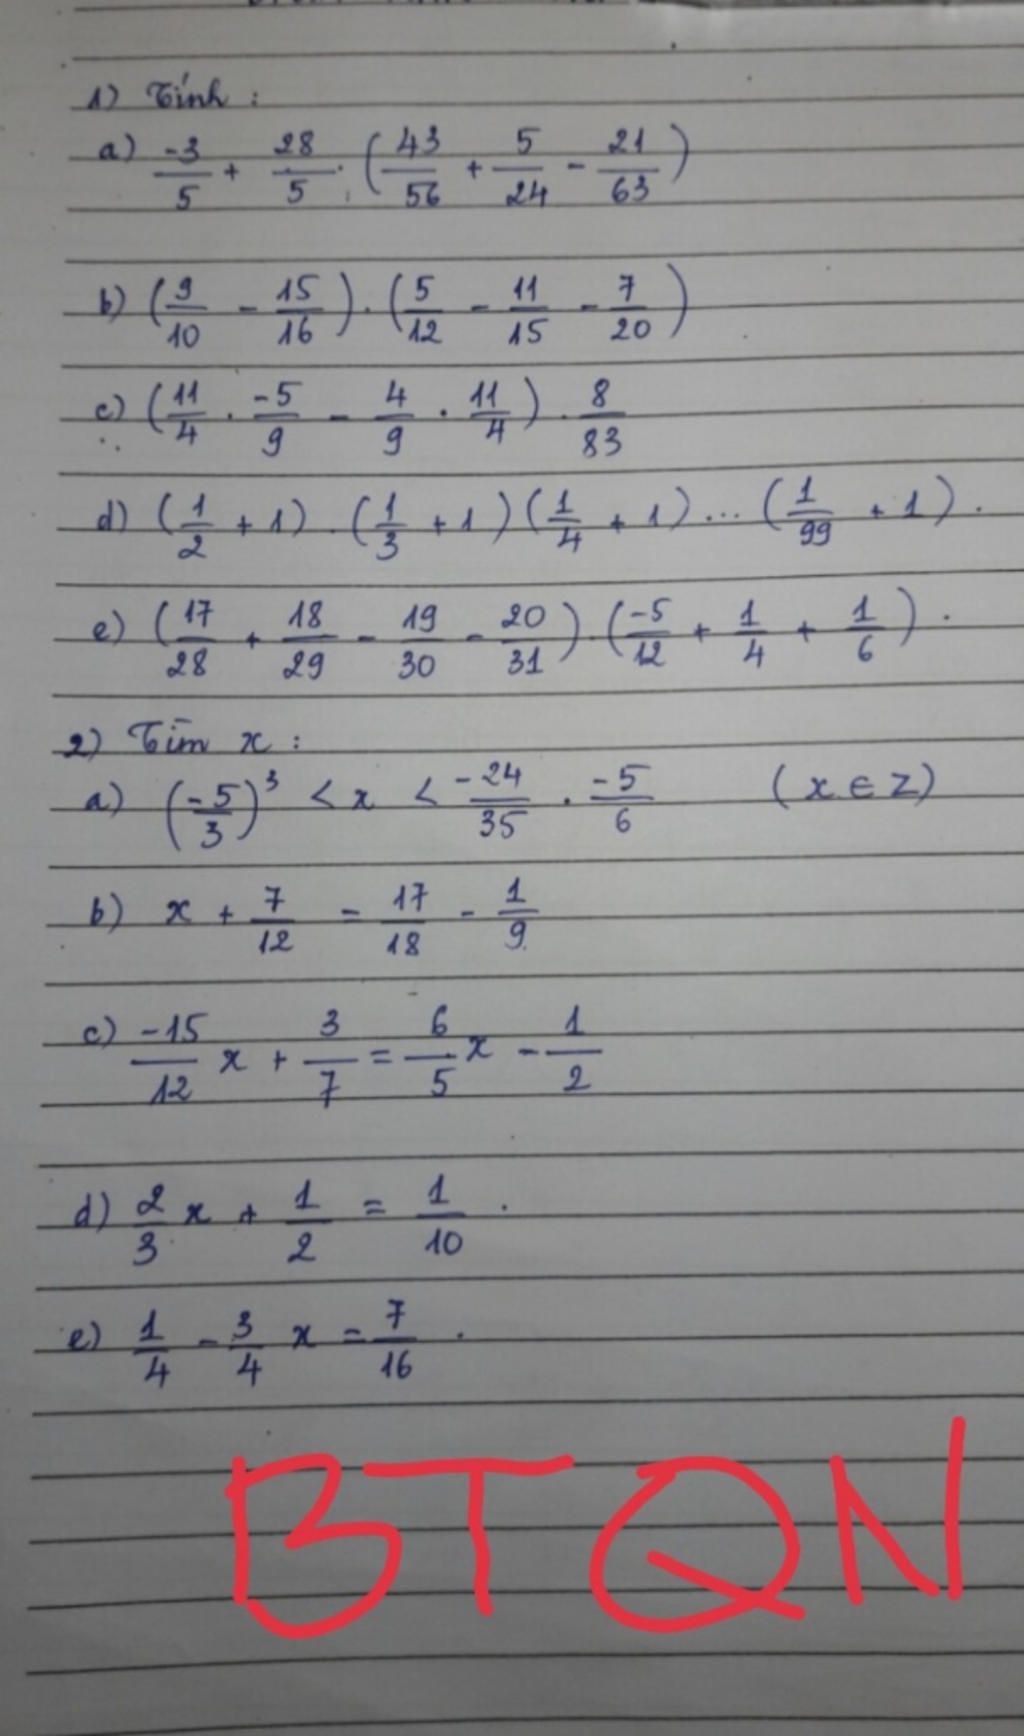 1) Tính :
a) -3/5 + 28/5 . (43/56 + 5/24 - 21/63)
b) (9/10 - 15/16) . (5/12 - 11/15 - 7/20)
c) (11/4 . -5/9 - 4/9 . 11/4) . 8/83
d) (1/2 + 1) . (1/3 + 1) (1/4 + 1) ... (1/99 + 1) .
e) (17/28 + 18/29 - 19/30 - 20/31) . (-5/12 + 1/4 + 1/6) .
2) Tìm x :
a) (-5/3)³ < x < -24/35 . -5/6 (x ∈ Z)
b) x + 7/12 = 17/18 - 1/9
c) -15/12 x + 3/7 = 6/5 x - 1/2
d) 2/3 x + 1/2 = 1/10 .
e) 1/4 - 3/4 x = 7/16 .
BTQN